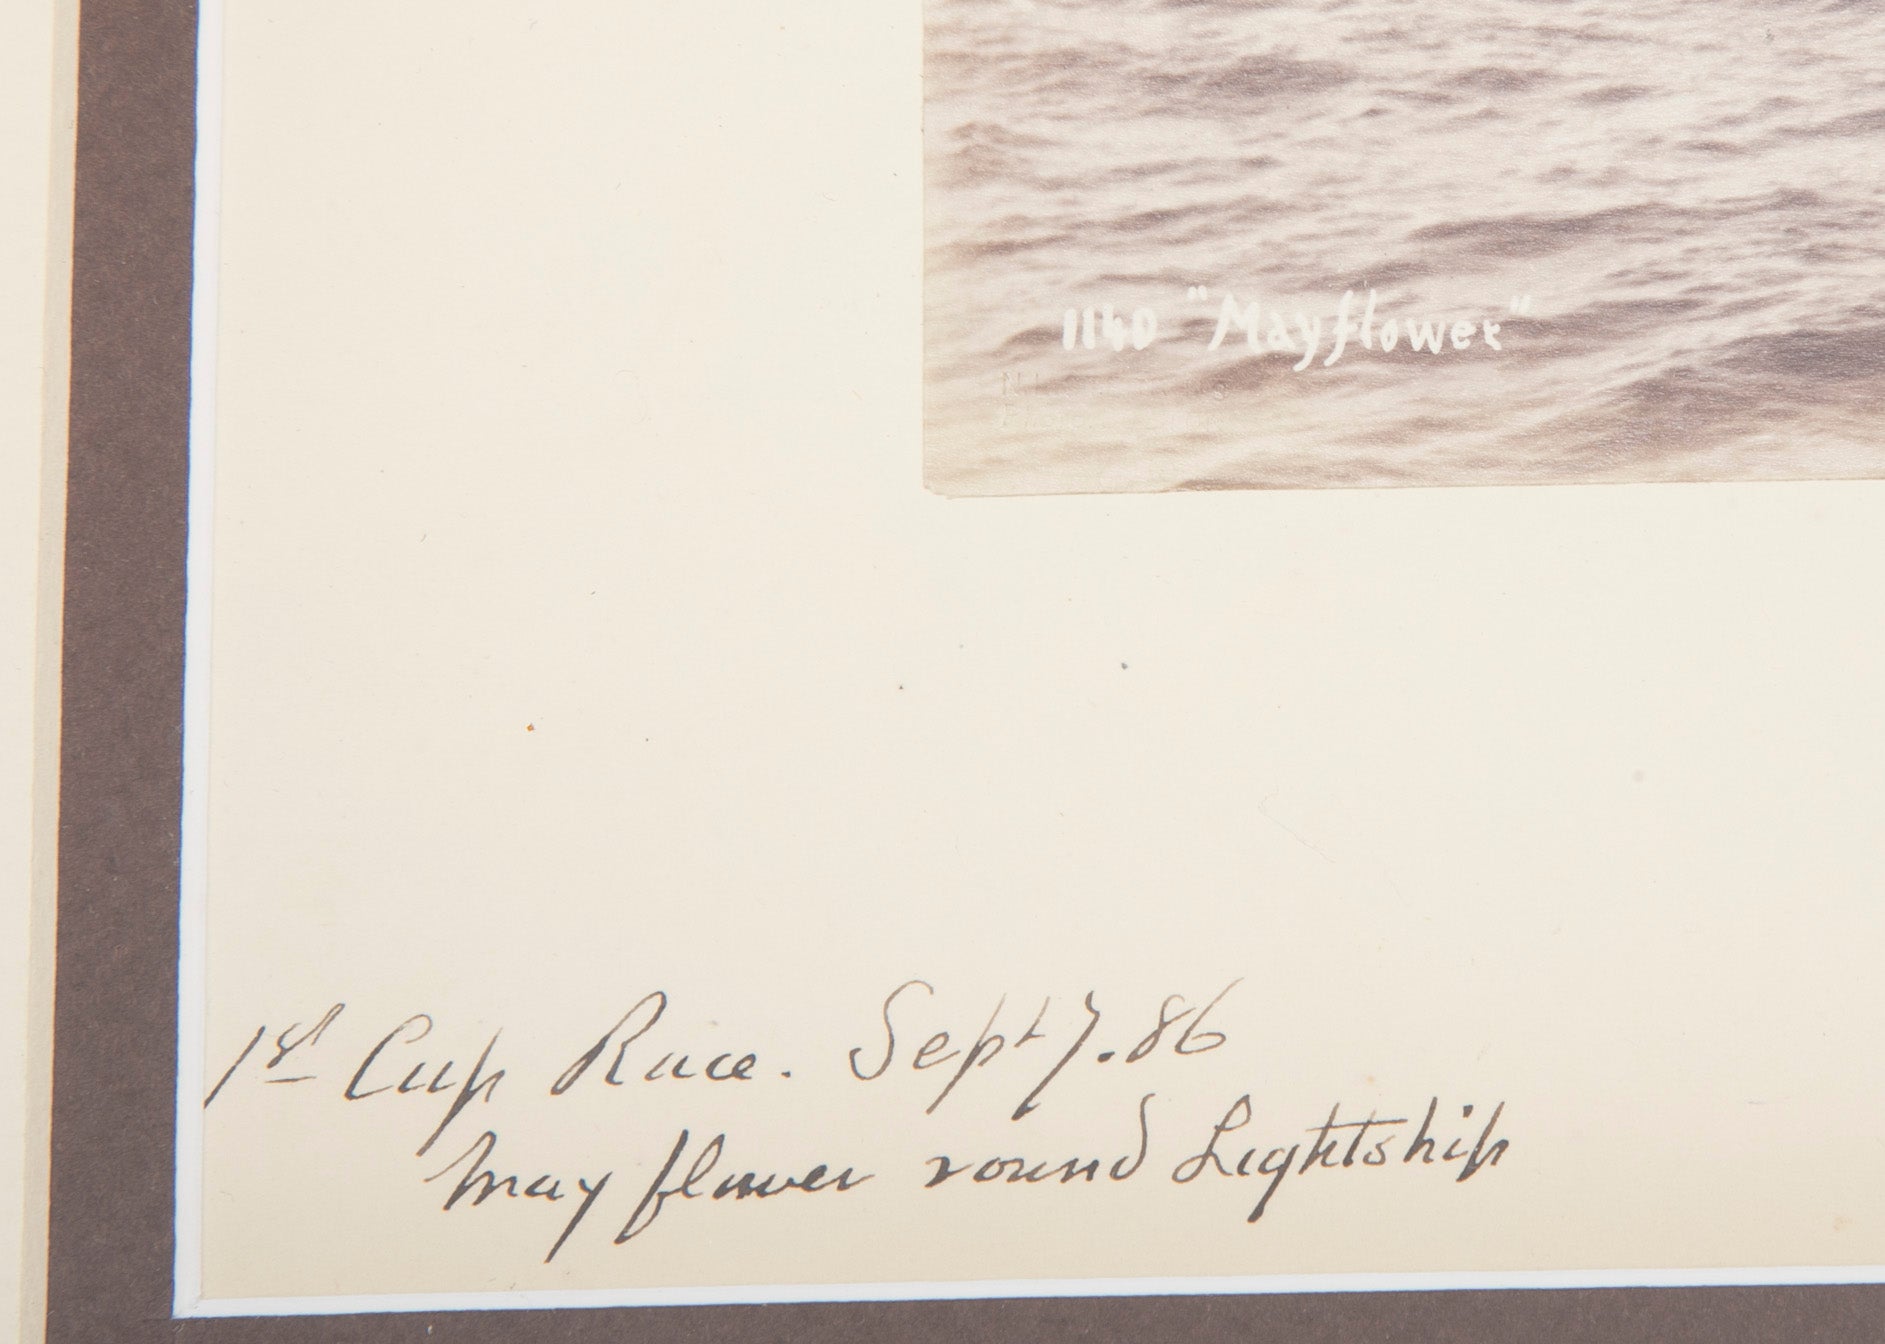 1140 "Mayflower"
1st Cup Race. Sept 7. 86
Mayflower round Lightship